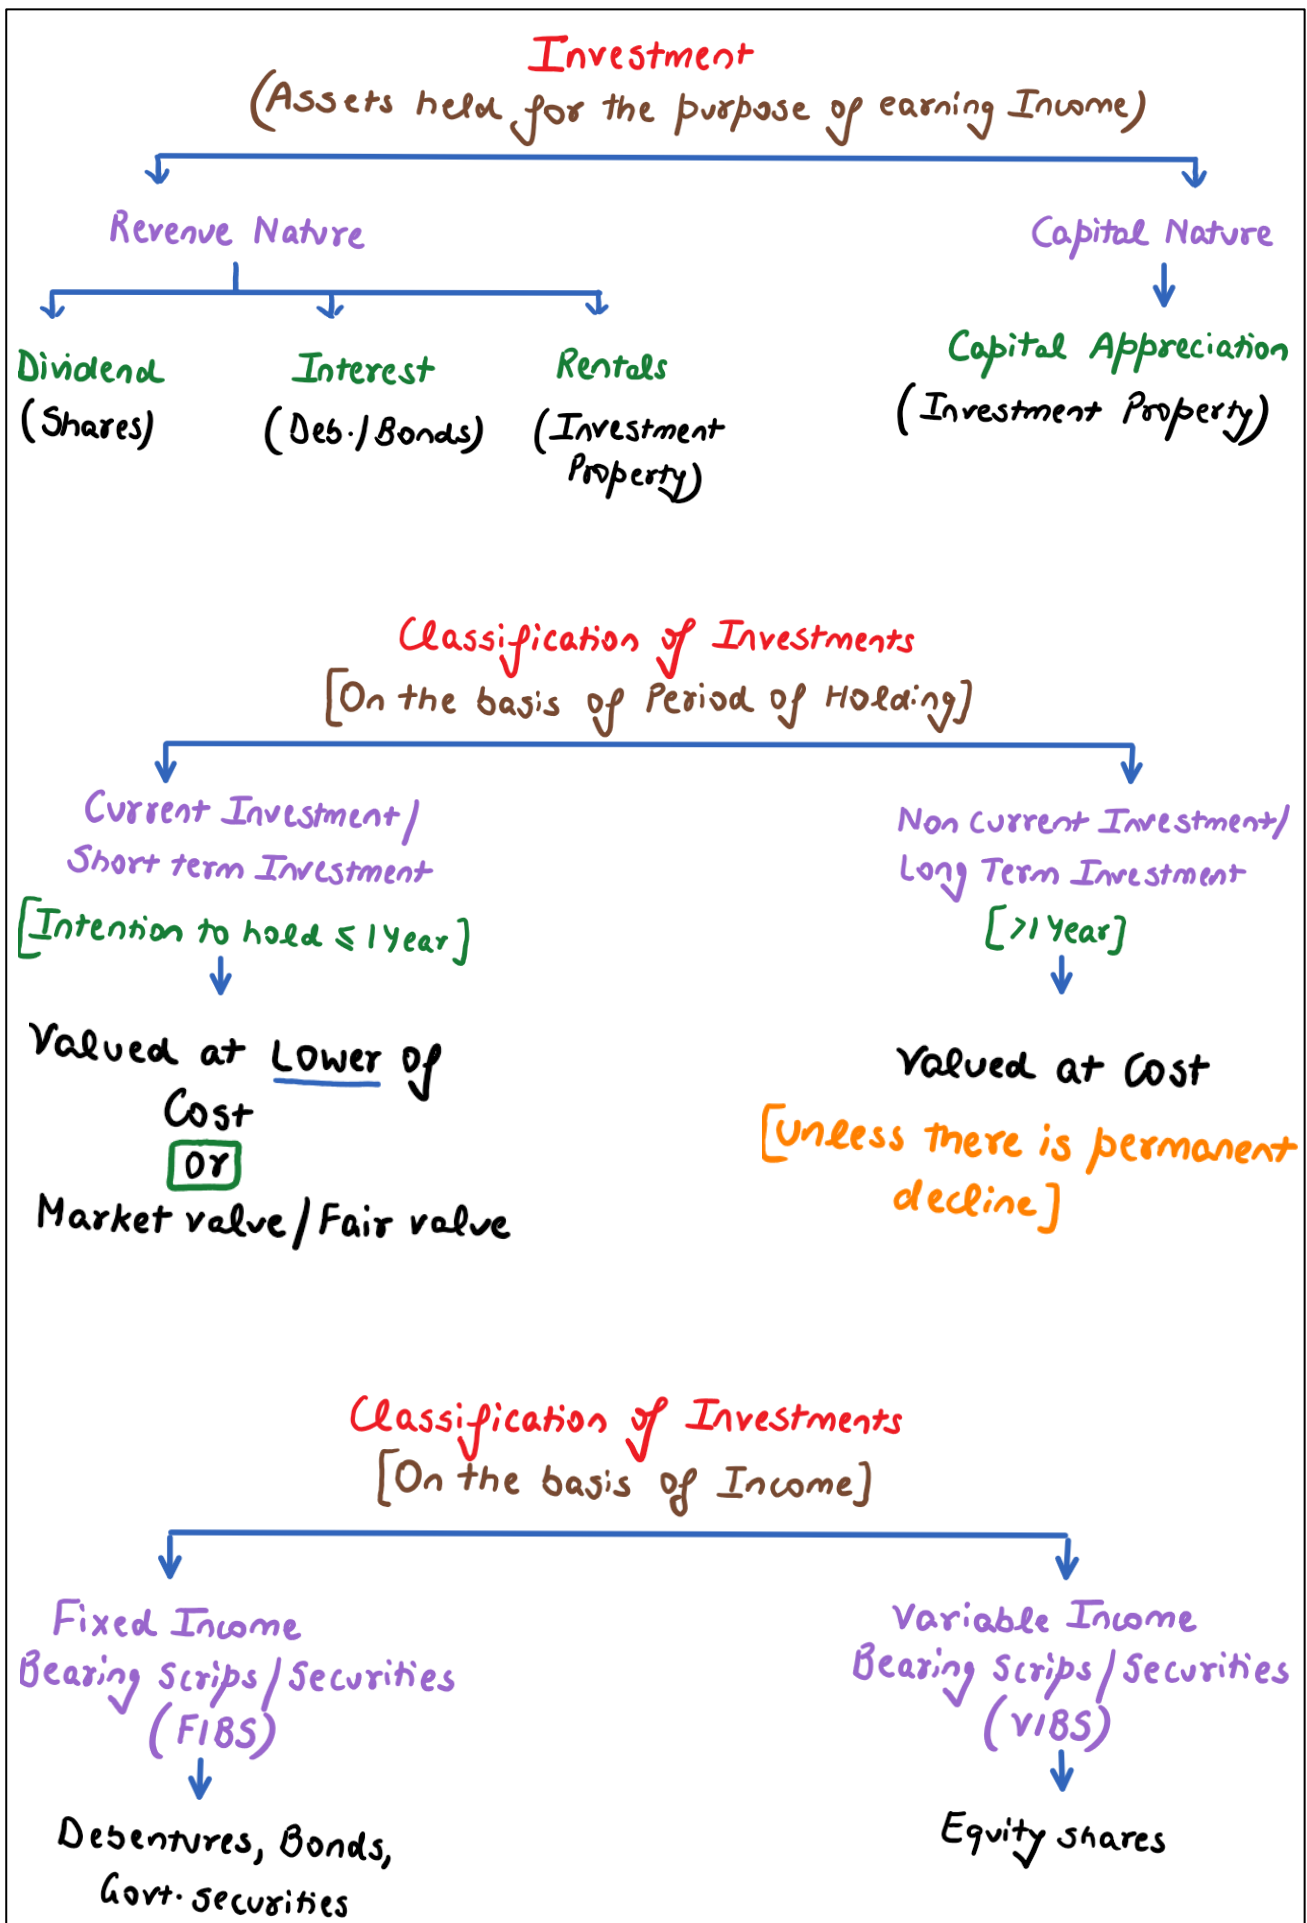 Investment
(Assets held for the purpose of earning Income)
Revenue Nature
Capital Nature
Dividend
(Shares)
Interest
(Deb./Bonds)
Rentals
(Investment
Property)
Capital Appreciation
(Investment Property)
Classification of Investments
[On the basis of Period of Holding]
Current Investment/
Short term Investment
[Intention to hold ≤ 1 Year]
Valued at Lower of
Cost
Or
Market value/Fair value
Non Current Investment/
Long Term Investment
[>1 Year]
Valued at Cost
[unless there is permanent
decline]
Classification of Investments
[On the basis of Income]
Fixed Income
Bearing Scrips/Securities
(FIBS)
Debentures, Bonds,
Govt. securities
Variable Income
Bearing Scrips/Securities
(VIBS)
Equity shares